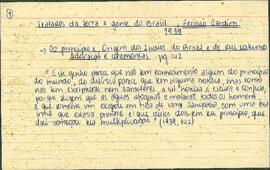 1
Tratados da terra e gente do Brasil, Fernão Cardim
1939
→ Do princípio e Origem dos Índios do Brasil e de seus costumes
adoração e cerimônias - pg. 142
" Este gentio parece que não tem conhecimento algum do princípio
do mundo, do dilúvio parece que tem alguma notícia, mas como
não tem escripturas, nem caracteres, a tal notícia é escura e confusa,
porque dizem que as águas afogarão e matarão todos os homens
e que somente um escapou em riba de um Janipaba, com uma sua
irmã que estava prenhe e que destes dois tem seu princípio, que
dali começou sua multiplicação" (1939, 142)